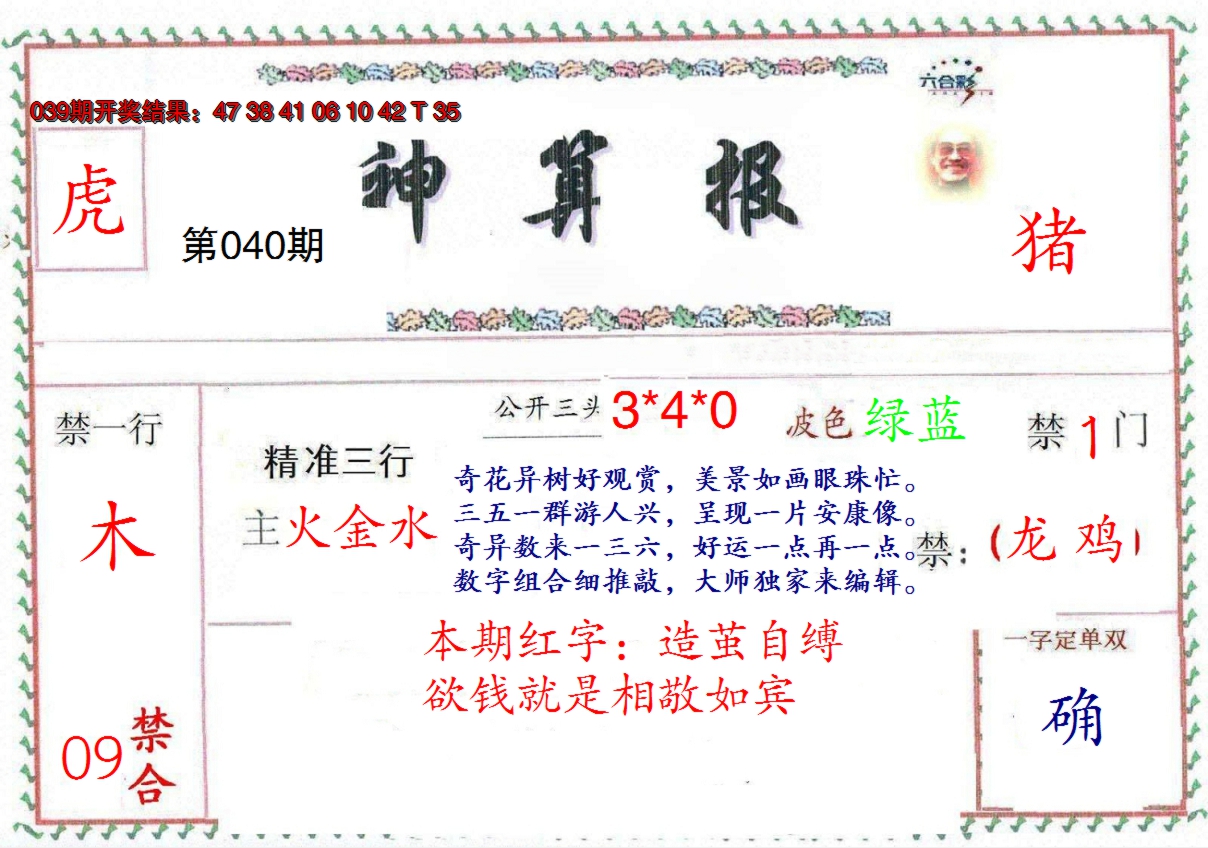 六合彩
039期开奖结果：47 38 41 06 10 42 T 35
神算报
虎
第040期
猪
禁一行
木
09
禁合
精准三行
主火金水
公开三头 3*4*0
波色 绿蓝
禁1门
奇花异树好观赏，美景如画眼珠忙。
三五一群游人兴，呈现一片安康像。
奇异数来一三六，好运一点再一点。
数字组合细推敲，大师独家来编辑。
禁：（龙 鸡）
本期红字：造茧自缚
欲钱就是相敬如宾
一字定单双
确